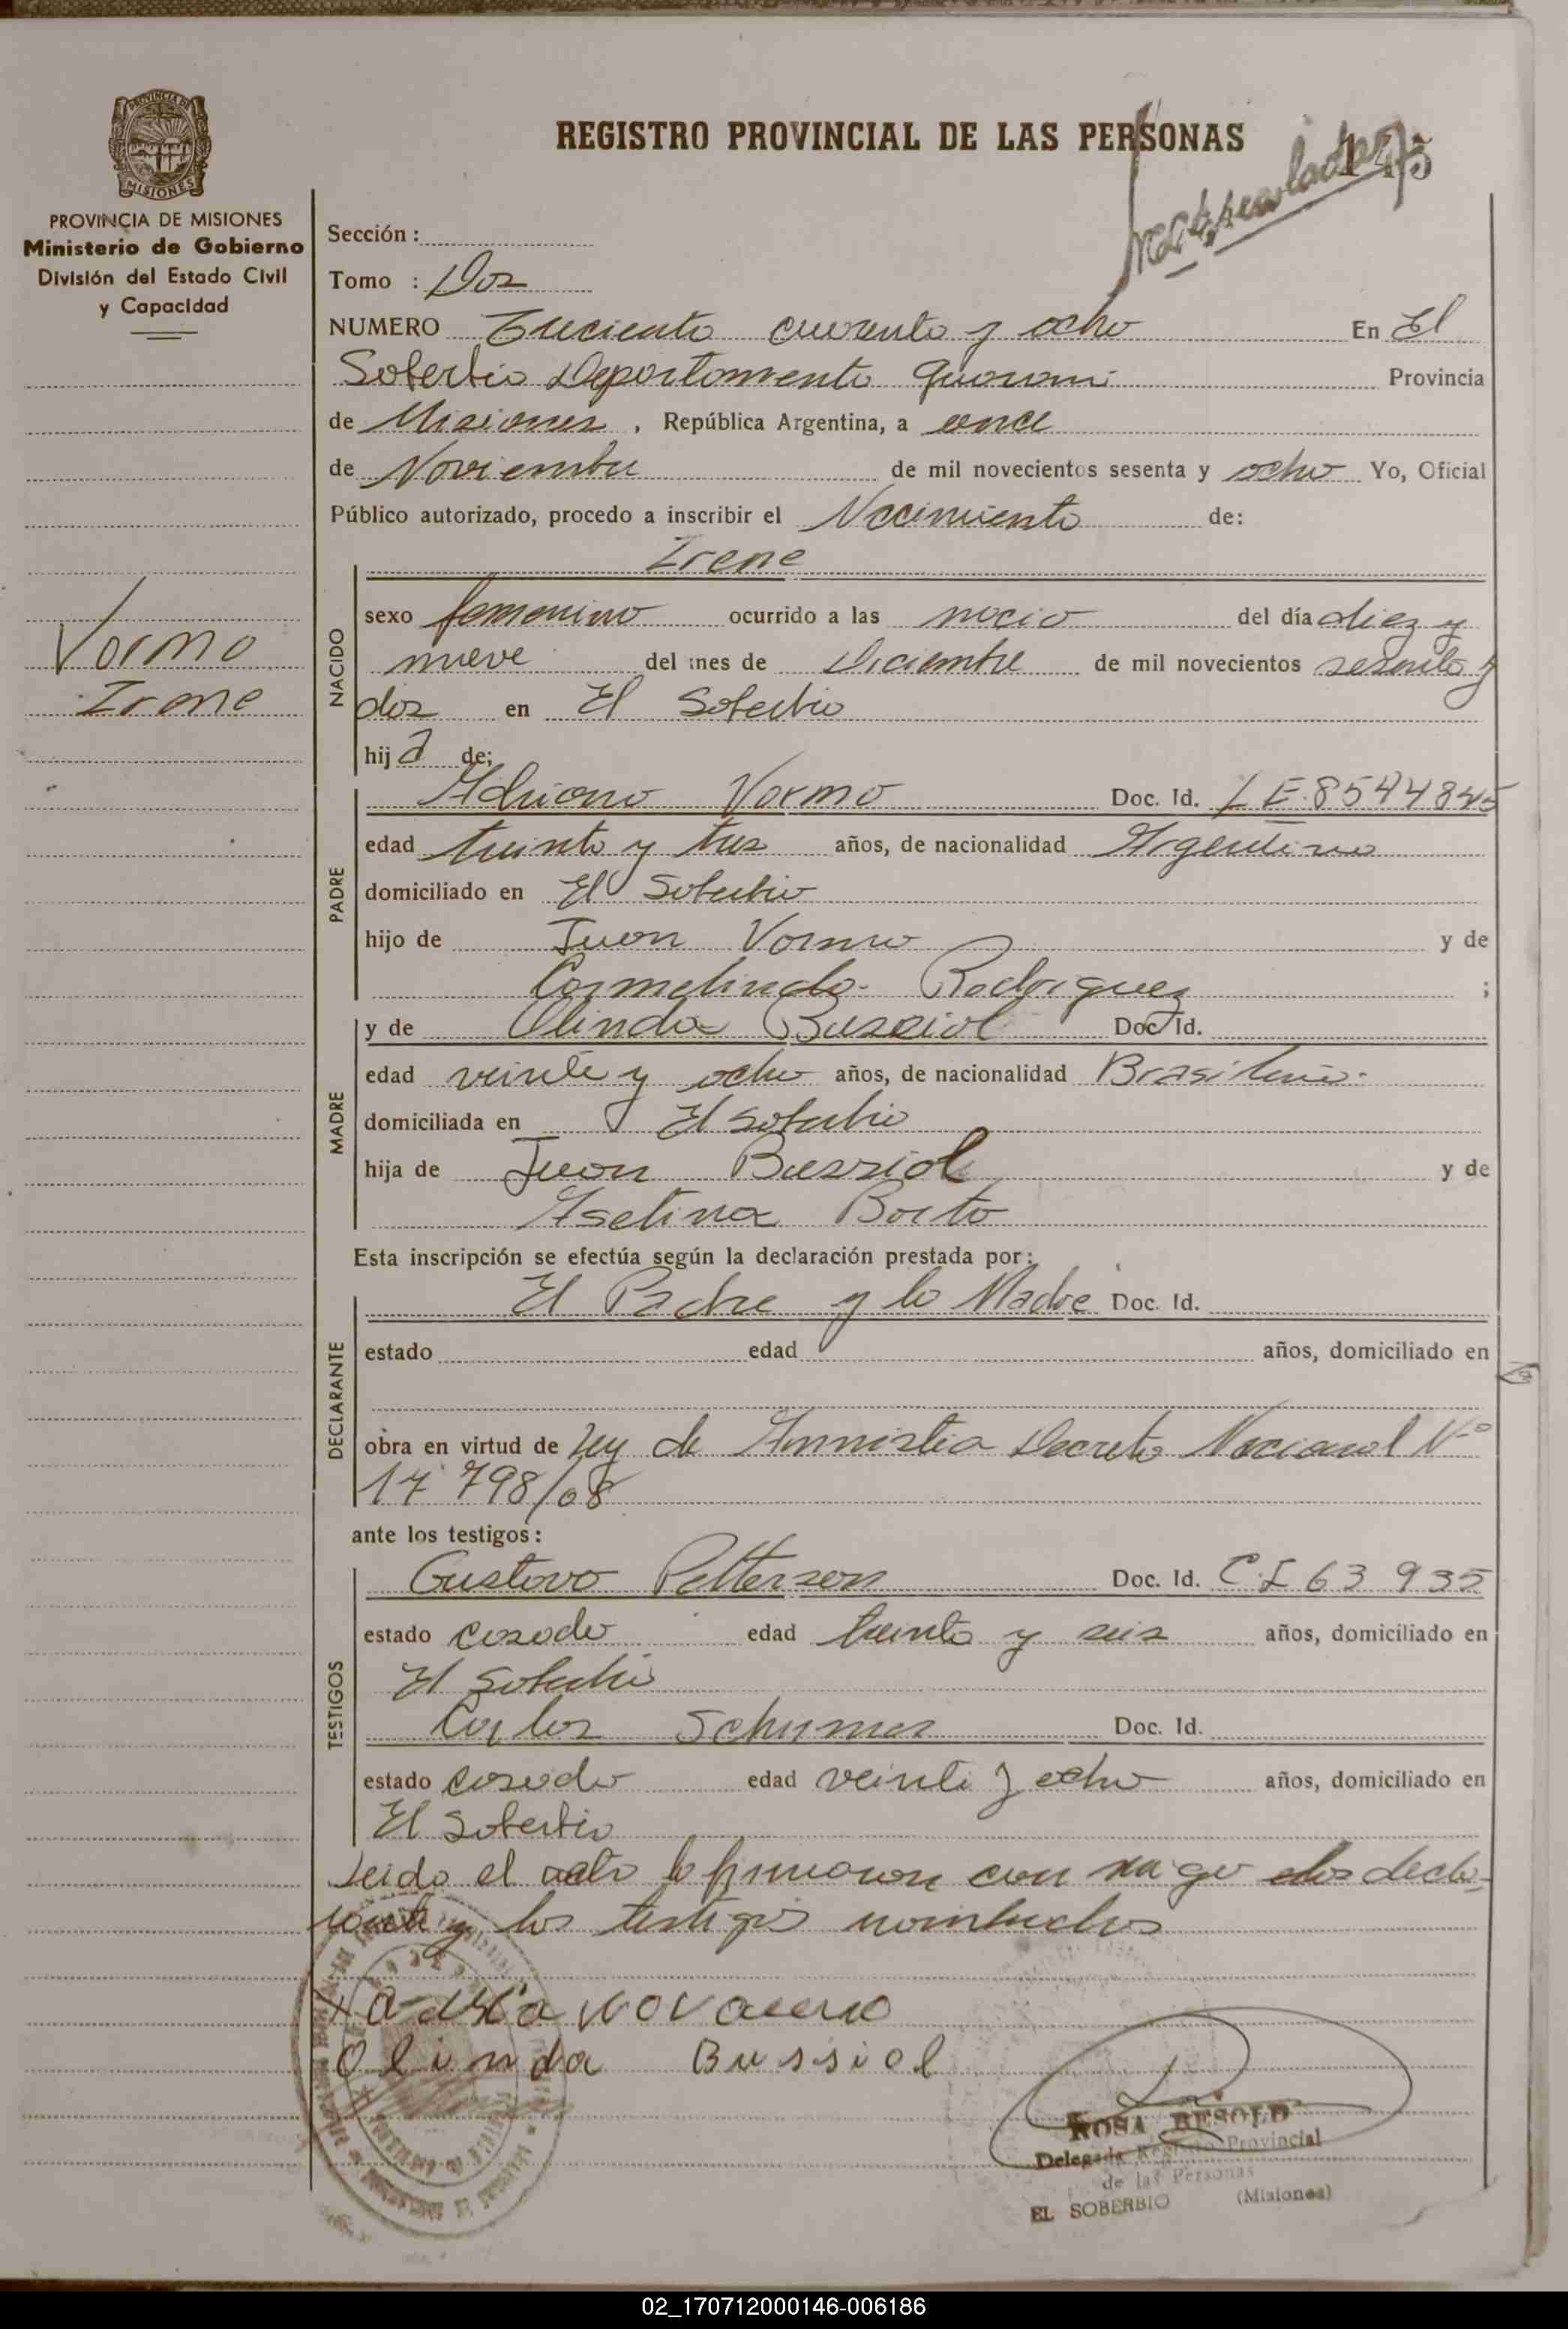 REGISTRO PROVINCIAL DE LAS PERSONAS
PROVINCIA DE MISIONES
Ministerio de Gobierno
División del Estado Civil
y Capacidad
Sección :
Tomo : Dos
NUMERO Treciento cuarenta y ocho En El
Soberbio Departamento Guarani Provincia
de Misiones , República Argentina, a once
de Noviembre de mil novecientos sesenta y ocho Yo, Oficial
Público autorizado, procedo a inscribir el Nacimiento de:
Irene
Vormo
Irene
NACIDO
sexo femenino ocurrido a las del día diez y
nueve del mes de Diciembre de mil novecientos sesenta y
dos en El Soberbio
hija de;
PADRE
Adriano Vormo Doc. Id.
edad treinta y tres años, de nacionalidad Argentino
domiciliado en El Soberbio
hijo de Juan Vormo y de
Carmelinda Rodriguez ;
MADRE
y de Olinda Bussiol Doc Id.
edad veinte y ocho años, de nacionalidad Brasilena
domiciliada en El Soberbio
hija de Juan Bussiol y de
Esta inscripción se efectúa según la declaración prestada por:
DECLARANTE
El Padre y la Madre Doc. Id.
estado edad años, domiciliado en
obra en virtud de Ley de Amnistia Decreto Nacional Nº
17 798/68
ante los testigos:
TESTIGOS
Gustavo Petterson Doc. Id. C.I 63 935
estado casado edad treinta y seis años, domiciliado en
El Soberbio
Carlos Doc. Id.
estado casado edad veinti y ocho años, domiciliado en
El Soberbio
Leido el acta la firmaron con migo los decla-
rante y los testigos nombrados
Olinda Bussiol
ROSA BESOLD
Delegada Registro Provincial
de las Personas
EL SOBERBIO (Misiones)
02_170712000146-006186